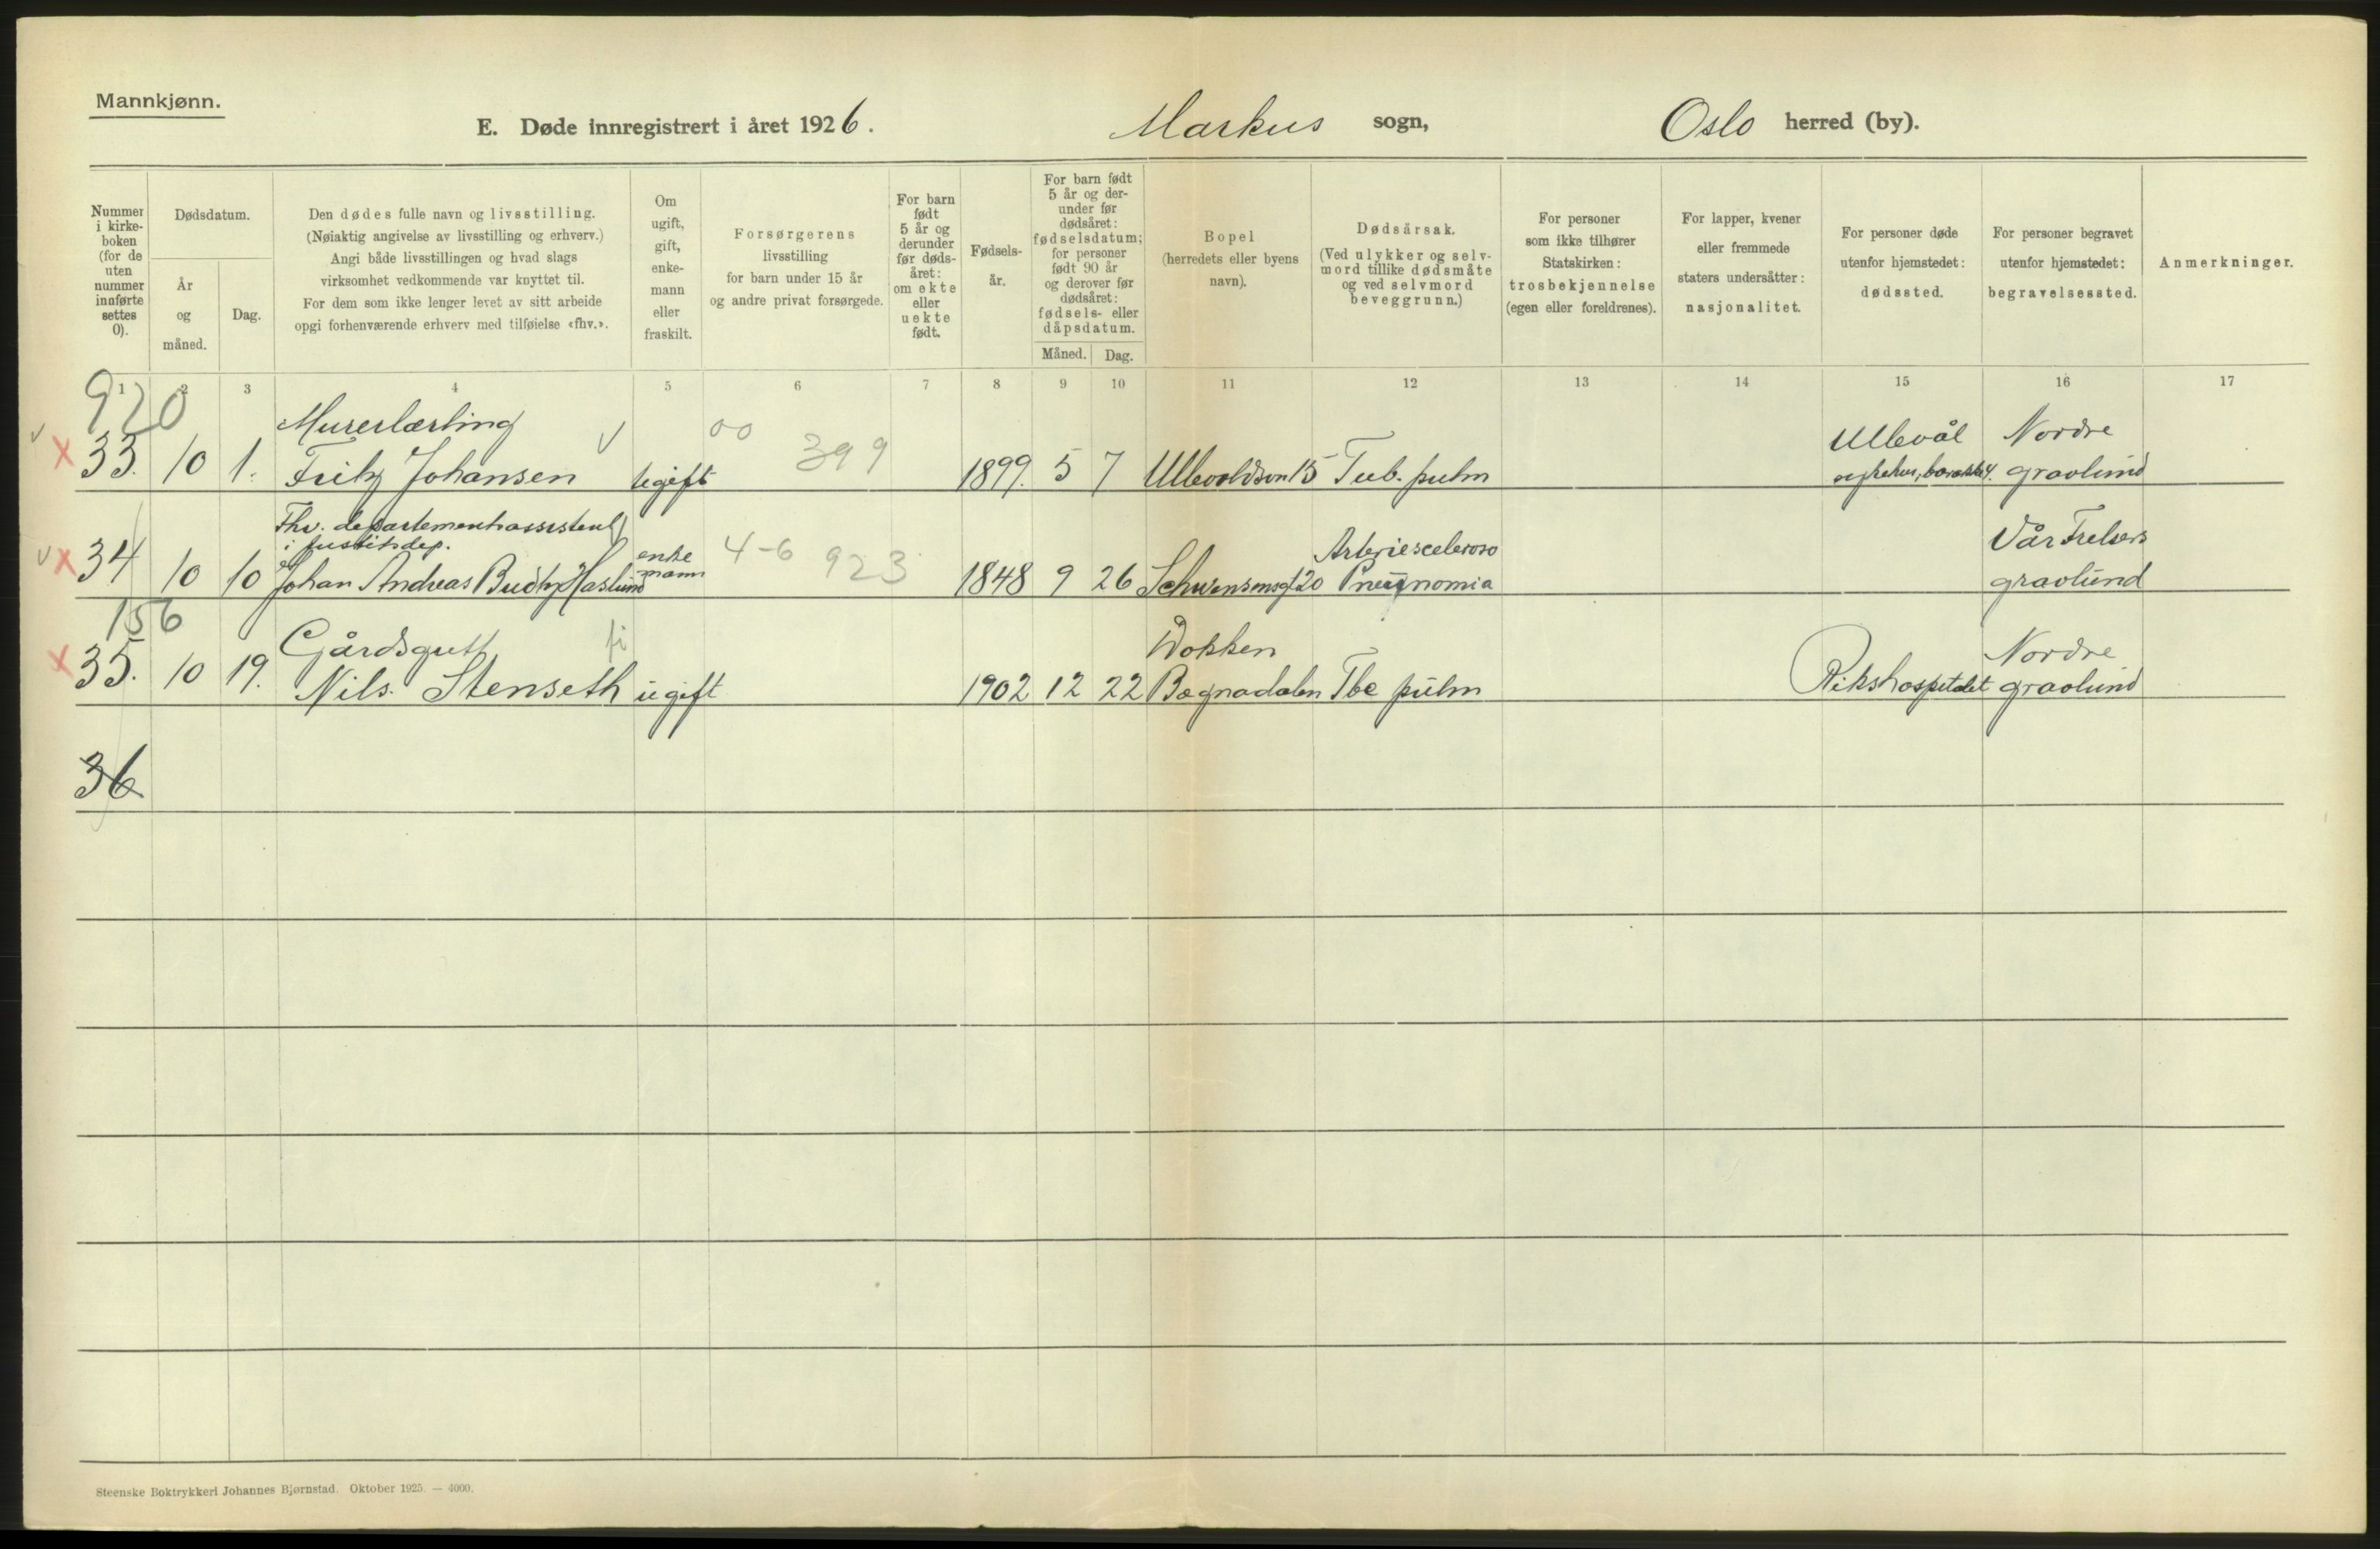 Mannkjønn.
E. Døde innregistrert i året 1926.
Markus sogn,
Oslo herred (by).
Nummer i kirke-boken (for de uten nummer innførte settes 0).
Dødsdatum.
År og måned.
Dag.
Den dødes fulle navn og livsstilling.
(Nøiaktig angivelse av livsstilling og erhverv.)
Angi både livsstillingen og hvad slags
virksomhet vedkommende var knyttet til.
For dem som ikke lenger levet av sitt arbeide
opgi forhenværende erhverv med tilføielse «fhv.».
Om ugift, gift, enke-mann eller fraskilt.
Forsørgerens
livsstilling
for barn under 15 år
og andre privat forsørgede.
For barn født 5 år og derunder før døds-året: om ekte eller uekte født.
Fødsels-år.
For barn født 5 år og der-under før dødsåret: fødselsdatum; for personer født 90 år og derover før dødsåret: fødsels- eller dåpsdatum.
Måned.
Dag.
Bopel
(herredets eller byens navn).
Dødsårsak.
(Ved ulykker og selv-mord tillike dødsmåte og ved selvmord beveggrunn.)
For personer som ikke tilhører Statskirken: trosbekjennelse (egen eller foreldrenes).
For lapper, kvener eller fremmede staters undersåtter: nasjonalitet.
For personer døde utenfor hjemstedet: dødssted.
For personer begravet utenfor hjemstedet: begravelsessted.
Anmerkninger.
1 2 3 4 5 6 7 8 9 10 11 12 13 14 15 16 17
920
Murerlærling v 00 399 Ullevål Nordre
v x 33. 10 1. Fritz Johansen ugift 1899. 5 7 15 Tub. pulm sykehus, gravlund
Fhv. departementsassistent
i justitsdep. enke 4-6 923 Vår Frelsers
v x 34 10 10 Johan Andreas Haslund mann 1848 9 26 Schwensensgt 20 gravlund
156
Gårdsgutt fi Dokken Nordre
x 35. 10 19. Nils Stenseth ugift 1902 12 22 Bægnadalen Tbc pulm Rikshospitalet gravlund
36
Steenske Boktrykkeri Johannes Bjørnstad. Oktober 1925. — 4000.